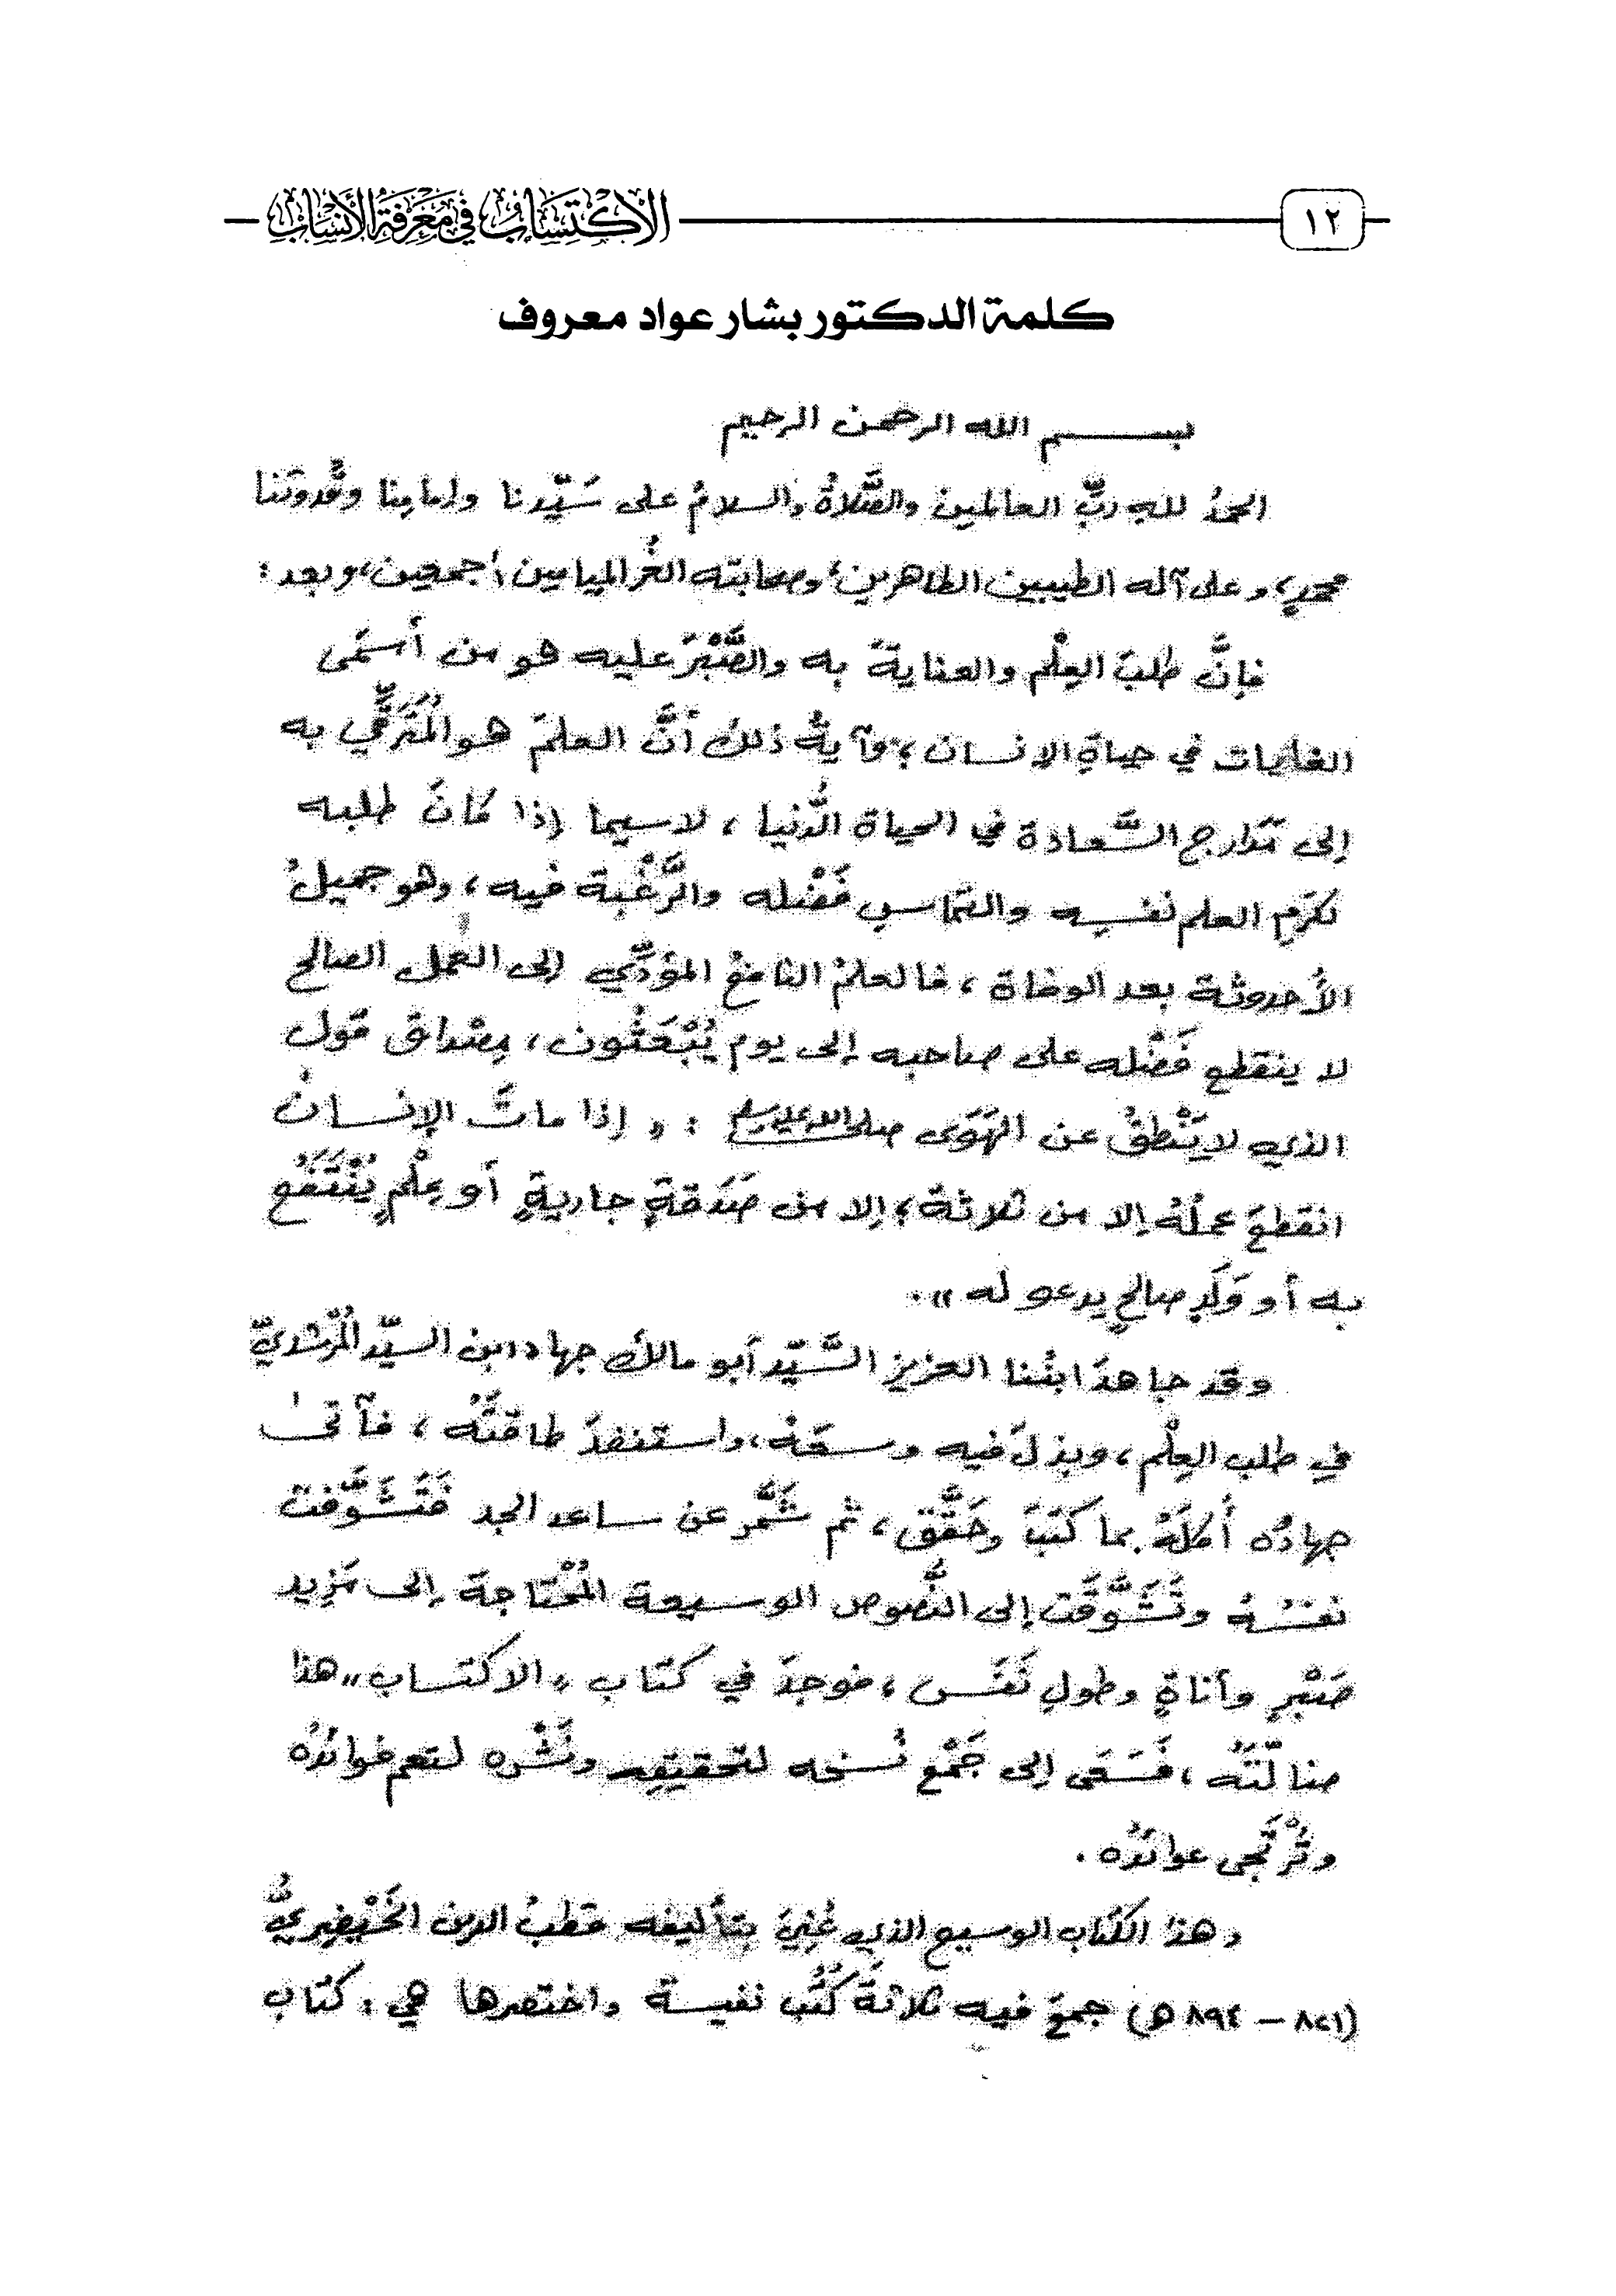 ١٢
الاكتساب في معرفة الأنساب
كلمة الدكتور بشار عواد معروف
بسم الله الرحمن الرحيم
الحمدُ للهِ ربِّ العالمينَ والصَّلاةُ والسلامُ على سَيِّدنا وإمامِنا وقُدوتَنا
محمدٍ، وعلى آله الطيبين الطاهرين، وصحابته الغُر الميامين أجمعين، وبعد:
فإنَّ طلبَ العِلْم والعنايةَ به والصَّبْرَ عليه هو من أَسمَى
الغايات في حياةِ الإنسان؛ وآيةُ ذلك أنَّ العلمَ هو المُتَرَقَّي به
إلى مَدَارج السَّعادة في الحياة الدُّنيا، لاسيما إذا كانَ طلبه
لكَرَمِ العلم نفسِه والتماسِ فَضْله والرَّغْبة فيه، وهو جميلُ
الأُحدوثة بعد الوفاة، فالعلمُ النافعُ المؤدِّي إلى العَمل الصالح
لا ينقطع فَضْله على صاحبه إلى يوم يُبْعَثُون، مِصْداق قول
الذي لا يَنْطقُ عن الهَوَى صلى الله عليه وسلم: «إذا ماتَ الإنسانُ
انقطعَ عملُهُ إلا من ثلاثة؛ إلا من صَدَقةٍ جاريةٍ أو عِلْمٍ يُنْتَفَعُ
به أو وَلَدٍ صالحٍ يدعو له».
وقد جاهدَ ابنُنا العزيز السَّيِّد أبو مالك جهاد ابن السيِّد المُرشديّ
في طلب العِلْم، وبذلَ فيه وسعَهُ، واستنفدَ طاقتَهُ، فآتى
جهادُه أُكلَهُ بما كَتَبَ وحَقَّق، ثم شَمَّر عن ساعد الجد فَتَشَوَّفت
نفسُهُ وتَشَوَّقَت إلى النُّصوص الوسيعة المُحْتاجة إلى مَزيد
صَبْرٍ وأناةٍ وطولِ نَفَس، فوجدَ في كتاب «الاكتساب» هذا
ضالَّتَهُ، فَسَعَى إلى جَمْعِ نُسخه لتحقيقِه ونَشْره لتعم فوائدُه
وتُرْتَجى عوائدُه.
وهذا الكتاب الوسيع الذي عُنِيَ بتأليفه قطبُ الدين الخَيْضِريُّ
(٨٢١ – ٨٩٤ هـ) جمعَ فيه ثلاثةَ كُتُب نفيسة واختصرها هي: كتاب